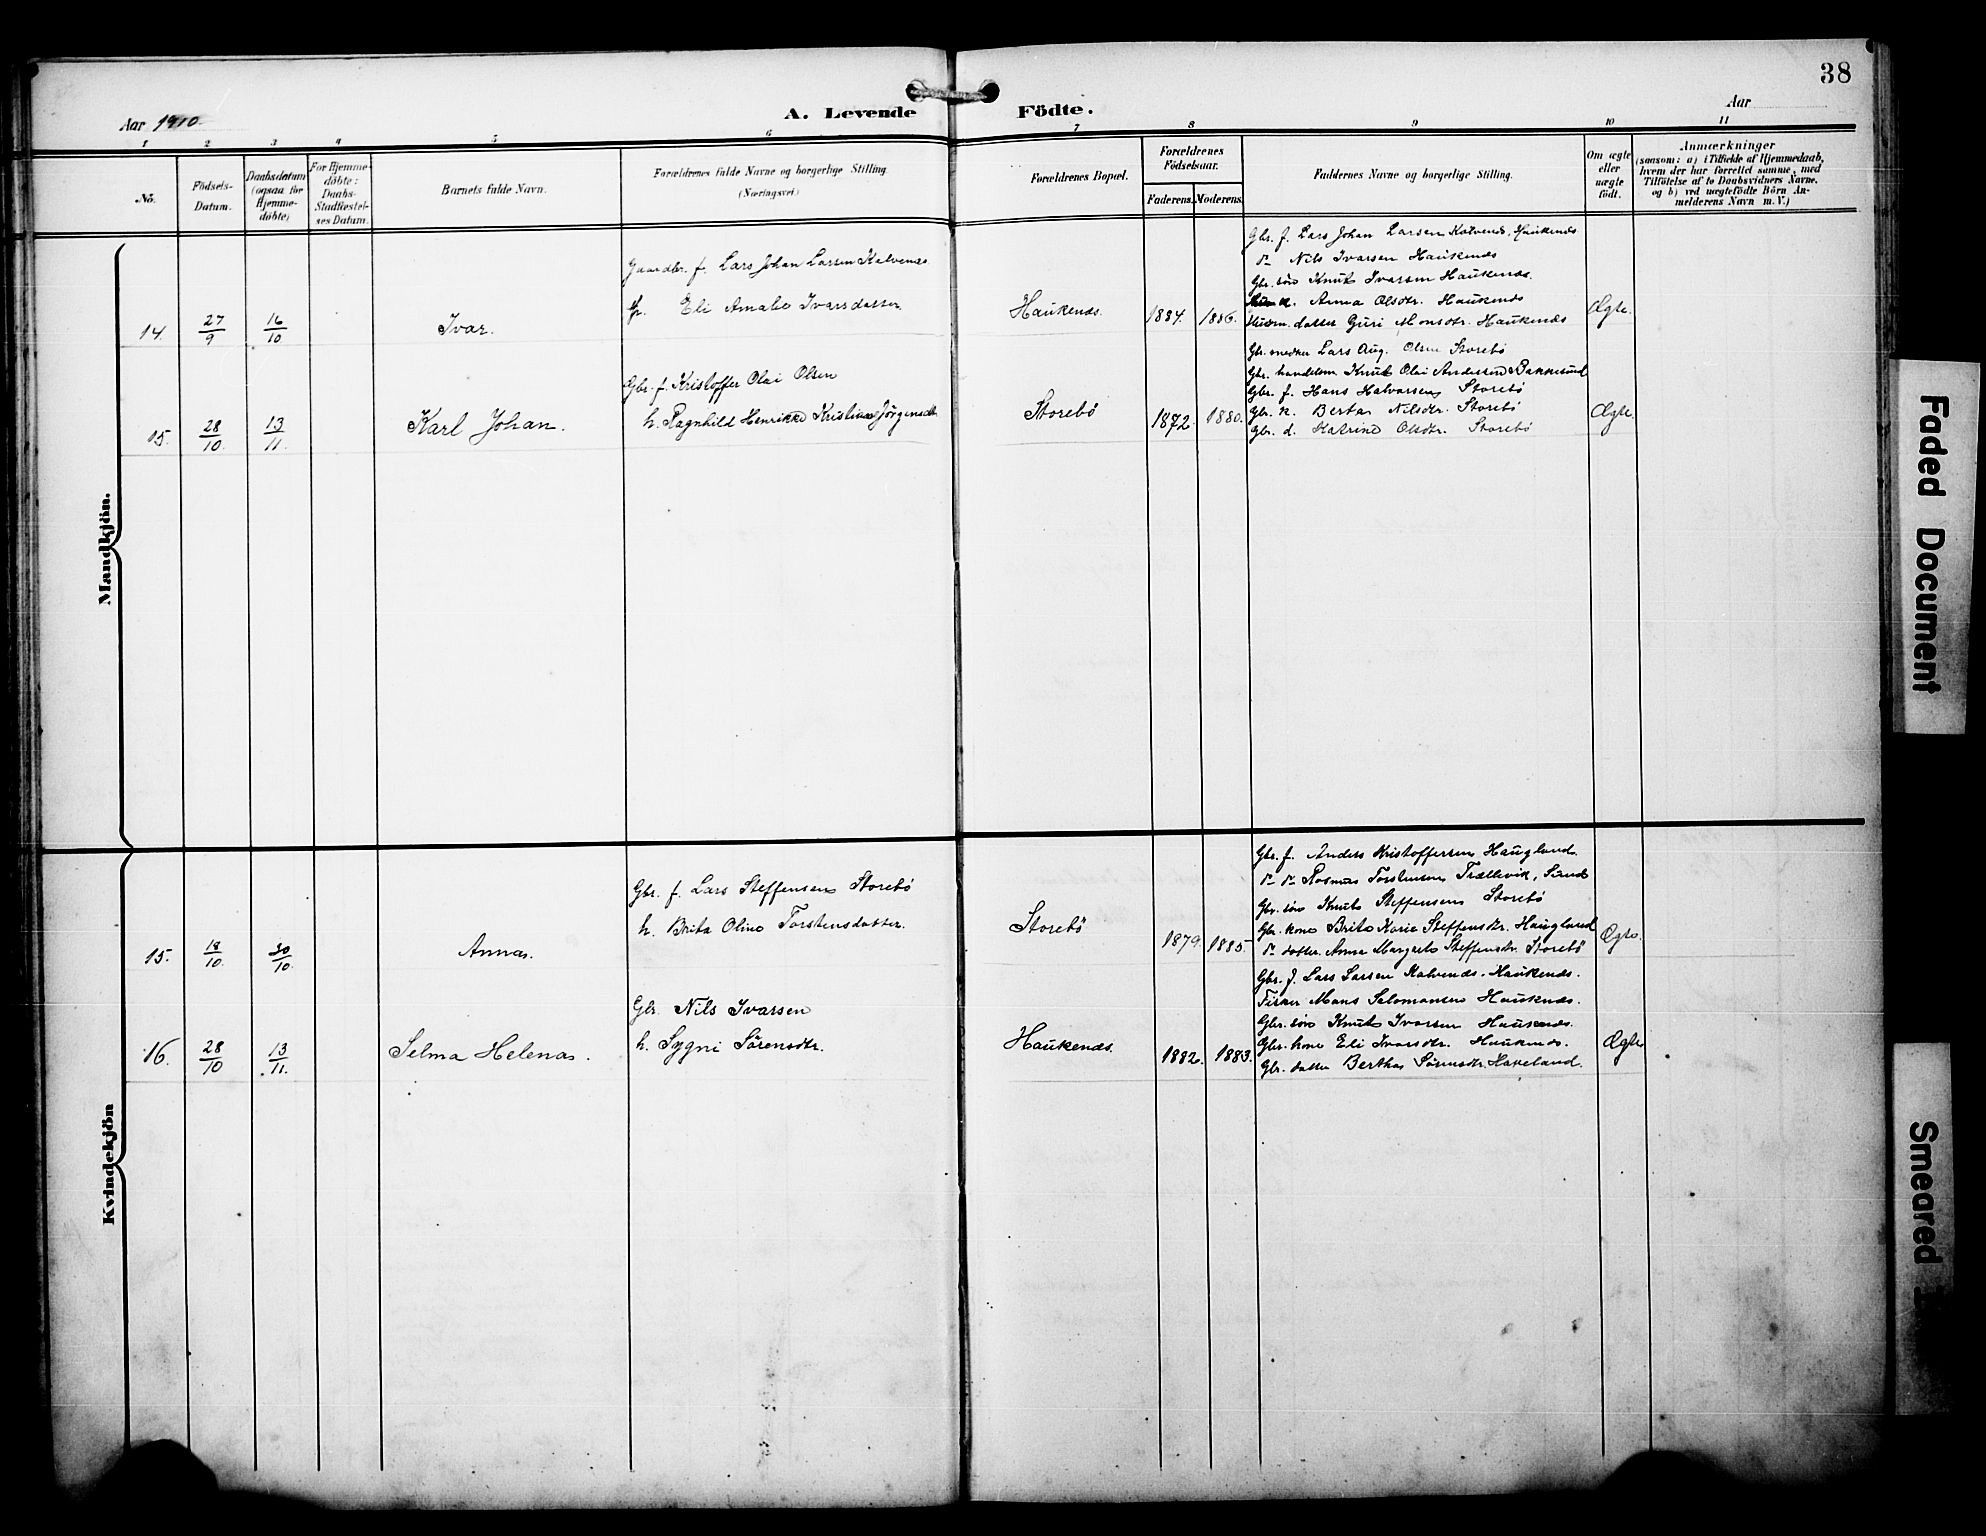 38
Aar 1910
A. Levende Födte.
Aar
1 2 3 4 5 6 7 8 9 10 11
No.
Födsels-
Datum.
Daabsdatum
(ogsaa for
Hjemme-
døbte)
For Hjemme-
døbte:
Daabs-
Stadfæstel-
ses Datum.
Barnets fulde Navn.
Forældrenes fulde Navne og borgerlige Stilling.
(Næringsvei)
Forældrenes Bopæl.
Forældrenes
Födselsaar.
Faderens. Moderens.
Faddernes Navne og borgerlige Stilling.
Om ægte
eller
uægte
födt.
Anmærkninger
(saasom: a) i Tilfælde af Hjemmedaab,
hvem der har forrettet samme, med
Tilföielse af to Daabsvidners Navne,
og b) ved uægtefödte Börn An-
melderens Navn m. V.)
Mandkjön.
14. 27/9 16/10 Ivar.
Gaardbr. f. Lars Johan Larsen Kalvenæs
Eli Amalie Ivarsdatter
Haukenæs. 1884. 1886.
Gbr. f. Lars Johan Larsen Kalvenæs, Haukenæs
Nils Ivarsen Haukenæs
Gbr. søn Knut Ivarsen Haukenæs.
k. Anna Olsdtr. Haukenæs
Husm. datter Guri Monsdtr. Haukenæs
Ægte.
15. 28/10. 13/11. Karl Johan.
Gbr. f. Kristoffer Olai Olsen
h. Ragnhild Henrikke Kristiane Jörgensdtr.
Storebö 1872. 1880.
Gbr. snedker Lars Aug. Olsen Storebö
Gbr. handelsm. Knut Olai Andersen Bakkesund
Gbr. f. Hans Halvorsen Storebö
Gbr. k. Berta Nilsdtr. Storebö
Gbr. d. Katrine Olsdtr. Storebö
Ægte.
Kvindekjön
15. 18/10. 30/10 Anna.
Gbr. f. Lars Steffensen Storebö
h. Brita Oline Torstensdatter.
Storebö 1879. 1885.
Gbr. f. Anders Kristoffersen Haugland.
Rasmus Torstensen Trællevik, Sund
Gbr. søn Knut Steffensen Storebö
Gbr. kone Brite Karie Steffensdtr. Haugland
datter Anna Margrete Steffensdtr. Storebö
Ægte.
16. 28/10 13/11. Selma Helena.
Gbr. Nils Ivarsen
h. Sygni Sörensdtr.
Haukenæs. 1882. 1883.
Gbr. f. Lars Larsen Kalvenæs. Haukenæs.
Fisker Mons Salomonsen Haukenæs.
Gbr. søn Knut Ivarsen Haukenæs.
Gbr. kone Eli Ivarsdtr. Haukenæs.
Gbr. datter Bertha Sörensdtr. Haveland.
Ægte
Faded Document
Smeared